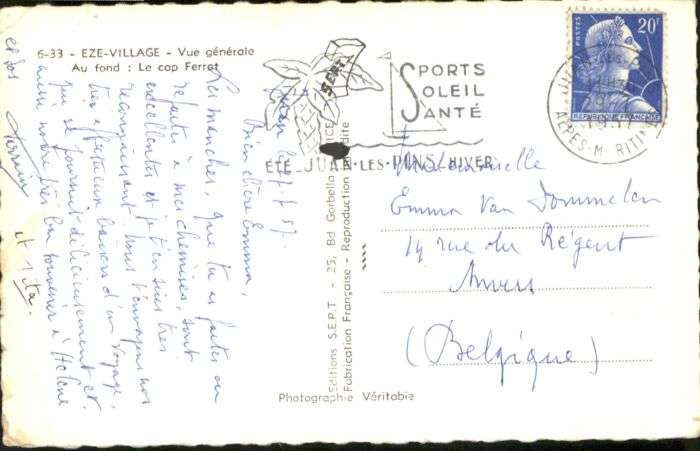 6-33 - EZE-VILLAGE - Vue générale
Au fond : Le cap Ferrat
SEPT
SPORTS
SOLEIL
SANTÉ
ÉTÉ JUAN-LES-PINS HIVER
POSTES
20F
REPUBLIQUE FRANÇAISE
ALPES-M RITIMES
Juan
Bien chère Emma,
Les manches, que tu as faites ou
refaites à mes chemises, sont
excellentes et je t'en suis très
reconnaissant. Nous t'envoyons nos
très affectueux baisers d'un voyage,
qui se poursuit délicieusement et
aussi notre très bon souvenir à Hélène
et
et Tita.
Mademoiselle
Emma Van Dommelen
14 rue du Régent
Anvers
(Belgique)
Editions S.E.P.T. - 25, Bd Gorbella NICE
Fabrication Française - Reproduction interdite
Photographie Véritable